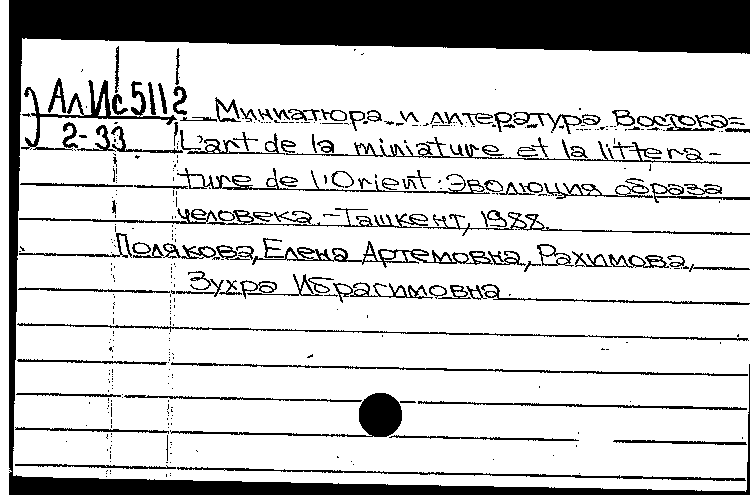 АлИс5112 Миниатюра и литература Востока=
2-33 L'art de la miniature et la littera-
ture de l'Orient: Эволюция образа
человека.-Ташкент, 1988.
Полякова, Елена Артемовна, Рахимова,
Зухра Ибрагимовна.